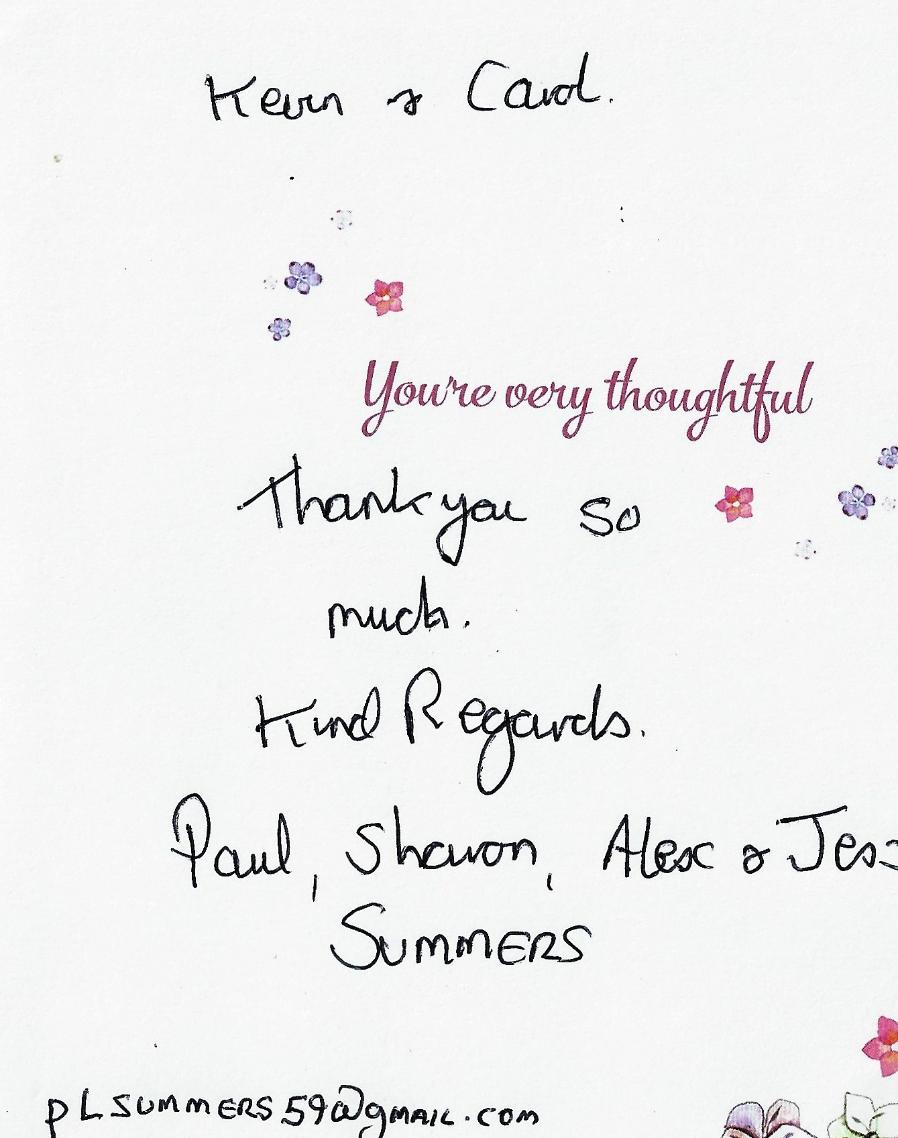 Kevin & Carol.
You're very thoughtful
Thank you so
much.
Kind Regards.
Paul, Sharon, Alex & Jess
SUMMERS
pLSUMMERS59@gmAIL.com